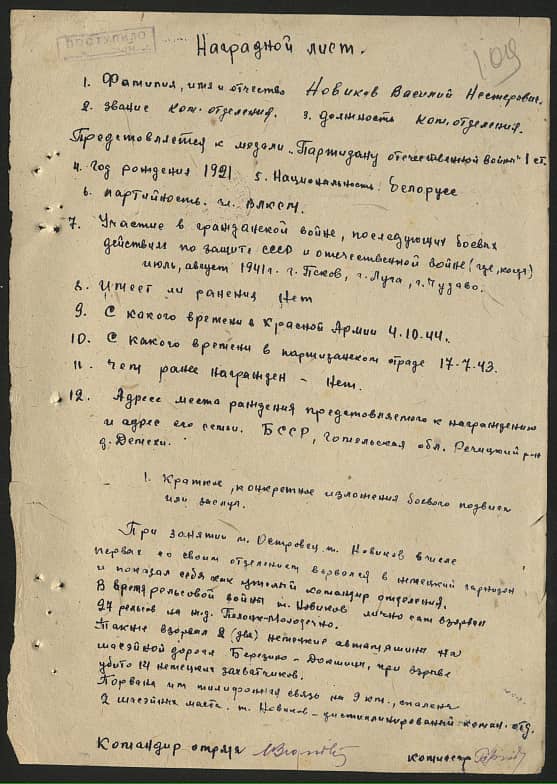 ПОСТУПИЛО
109
Наградной лист.
1. Фамилия, имя и отчество Новиков Василий Нестерович.
2. Звание ком. отделения. 3. должность ком. отделения.
Предстовляется к медали "Партизану отечественной войны" I ст.
4. Год рождения 1921 5. Национальность: Белорусс
6. партийность. чл. ВЛКСМ.
7. Участие в гражданской войне, последующих боевых
действиям по защите СССР и отечественной войне (где, когда)
июль, август 1941г. г. Псков, г. Луга, г. Чудово.
8. Имеет ли ранения Нет
9. С какого времени в Красной Армии 4.10.44.
10. С какого времени в партизанском отряде 17-7.43.
11. Чем ранее награжден - Нет.
12. Адресс места раждения предстовляемого к награждению
и адрес его семьи. БССР, Гомельская обл. Речицкий р-н
д.
1. Краткое, конкретное изложения боевого подвига
или заслуг.
При занятии м. Островец т. Новиков в числе
первых со своим отделением ворвался в немецкий гарнизон
и показал себя как умелый командир отделения.
В время рельсовой войны т. Новиков лично сам взорвал
27 рельсов на ж.д. Полоцк-Молодечно.
Также взорвал 2 (два) немецкие автомашины на
шасейной дороге Березино - Докшицы, при взрыве
убито 14 немецких захватчиков.
Порвана им телефонная связь на 9 км., спалены
2 шасейных моста. т. Новиков - дисциплинированный коман. отд.
Командир отряда
комиссар